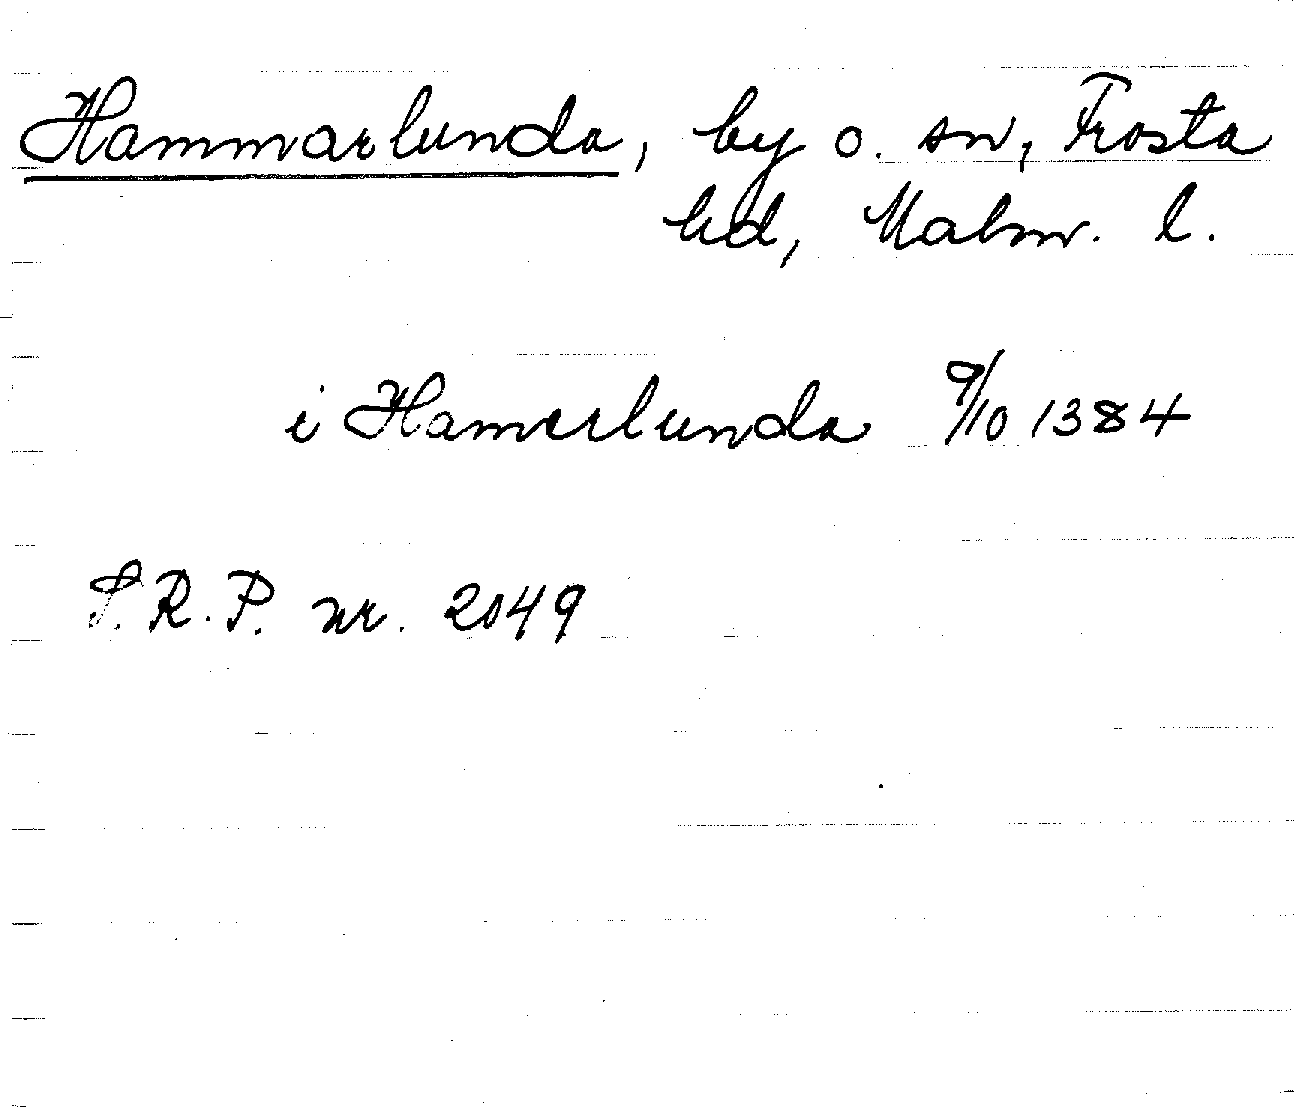 Hammarlunda, by o. sn, Frosta
hd, Malm. l.
i Hamerlunda 9/10 1384
S.R.P. nr. 2049